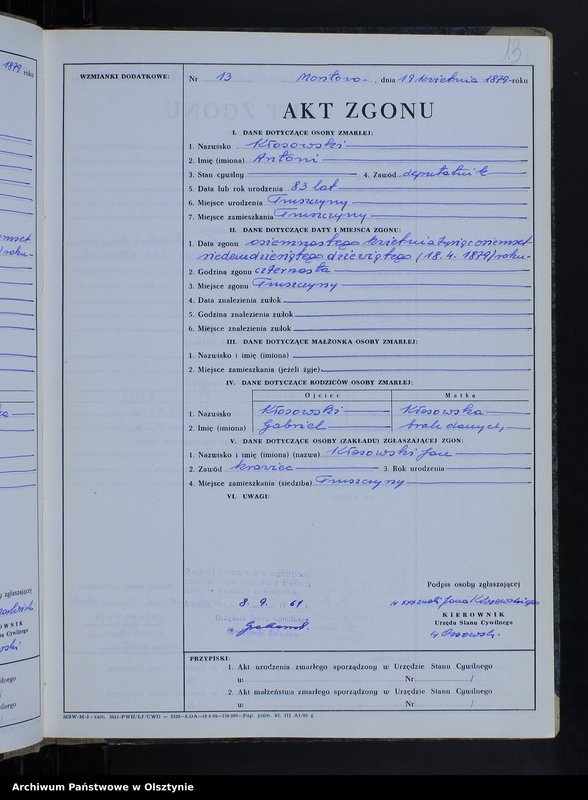 13
1879 roku
WZMIANKI DODATKOWE:
Nr 13 Montowo, dnia 19 kwietnia 1879 roku
AKT ZGONU
I. DANE DOTYCZĄCE OSOBY ZMARŁEJ:
1. Nazwisko Kłosowski
2. Imię (imiona) Antoni
3. Stan cywilny 4. Zawód deputatnik
5. Data lub rok urodzenia 83 lat
6. Miejsce urodzenia Truszczyny
7. Miejsce zamieszkania Truszczyny
II. DANE DOTYCZĄCE DATY I MIEJSCA ZGONU:
1. Data zgonu osiemnastego kwietnia tysiąc osiemset
siedemdziesiątego dziewiątego (18. 4. 1879) roku
2. Godzina zgonu czternasta
3. Miejsce zgonu Truszczyny
4. Data znalezienia zwłok
5. Godzina znalezienia zwłok
6. Miejsce znalezienia zwłok
III. DANE DOTYCZĄCE MAŁŻONKA OSOBY ZMARŁEJ:
1. Nazwisko i imię (imiona)
2. Miejsce zamieszkania (jeżeli żyje)
IV. DANE DOTYCZĄCE RODZICÓW OSOBY ZMARŁEJ:
Ojciec Matka
1. Nazwisko Kłosowski Kłosowska
2. Imię (imiona) Gabriel brak danych
V. DANE DOTYCZĄCE OSOBY (ZAKŁADU) ZGŁASZAJĄCEJ ZGON:
1. Nazwisko i imię (imiona) (nazwa) Kłosowski Jan
2. Zawód krawiec 3. Rok urodzenia
4. Miejsce zamieszkania (siedziba) Truszczyny
VI. UWAGI:
Poświadczam zgodność
8. 9. 61
Urzędnik Stanu Cywilnego
Podpis osoby zgłaszającej
Jana Kłosowskiego
KIEROWNIK
Urzędu Stanu Cywilnego
Ossowski
PRZYPISKI:
1. Akt urodzenia zmarłego sporządzony w Urzędzie Stanu Cywilnego
w Nr /
2. Akt małżeństwa zmarłego sporządzony w Urzędzie Stanu Cywilnego
w Nr /
Archiwum Państwowe w Olsztynie